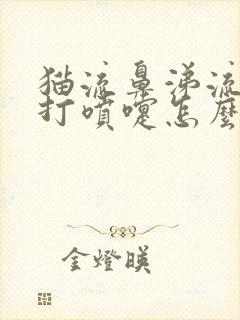 猫流鼻涕流
打噴嚏怎麼
金燈暎